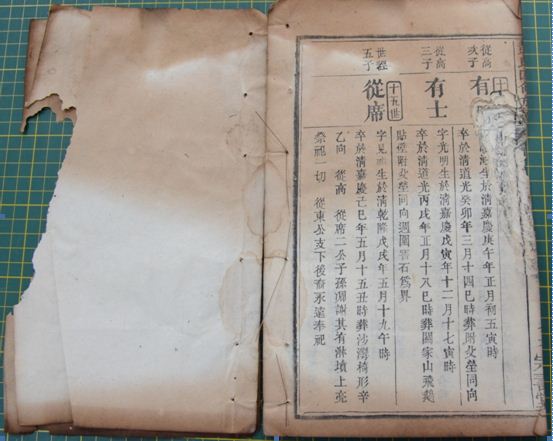 從高
次子
有
生於清嘉慶庚午年正月初五寅時
卒於清道光癸卯年三月十四巳時葬附父塋同向
從高
三子
有士
字光明生於清嘉慶戊寅年十二月十七寅時
卒於清道光丙戌年正月十八巳時葬關家山飛鵝
貼壁附父塋同向週圍石爲界
世經
五子
十五世
從席
字見明生於清乾隆戊戌年五月十九午時
卒於清嘉慶己巳年五月十五丑時葬沙灣椅形辛
乙向 從高 從席二公子孫凋謝其有淋墳上亮
祭祀一切 從東公支下後裔永遠奉祀